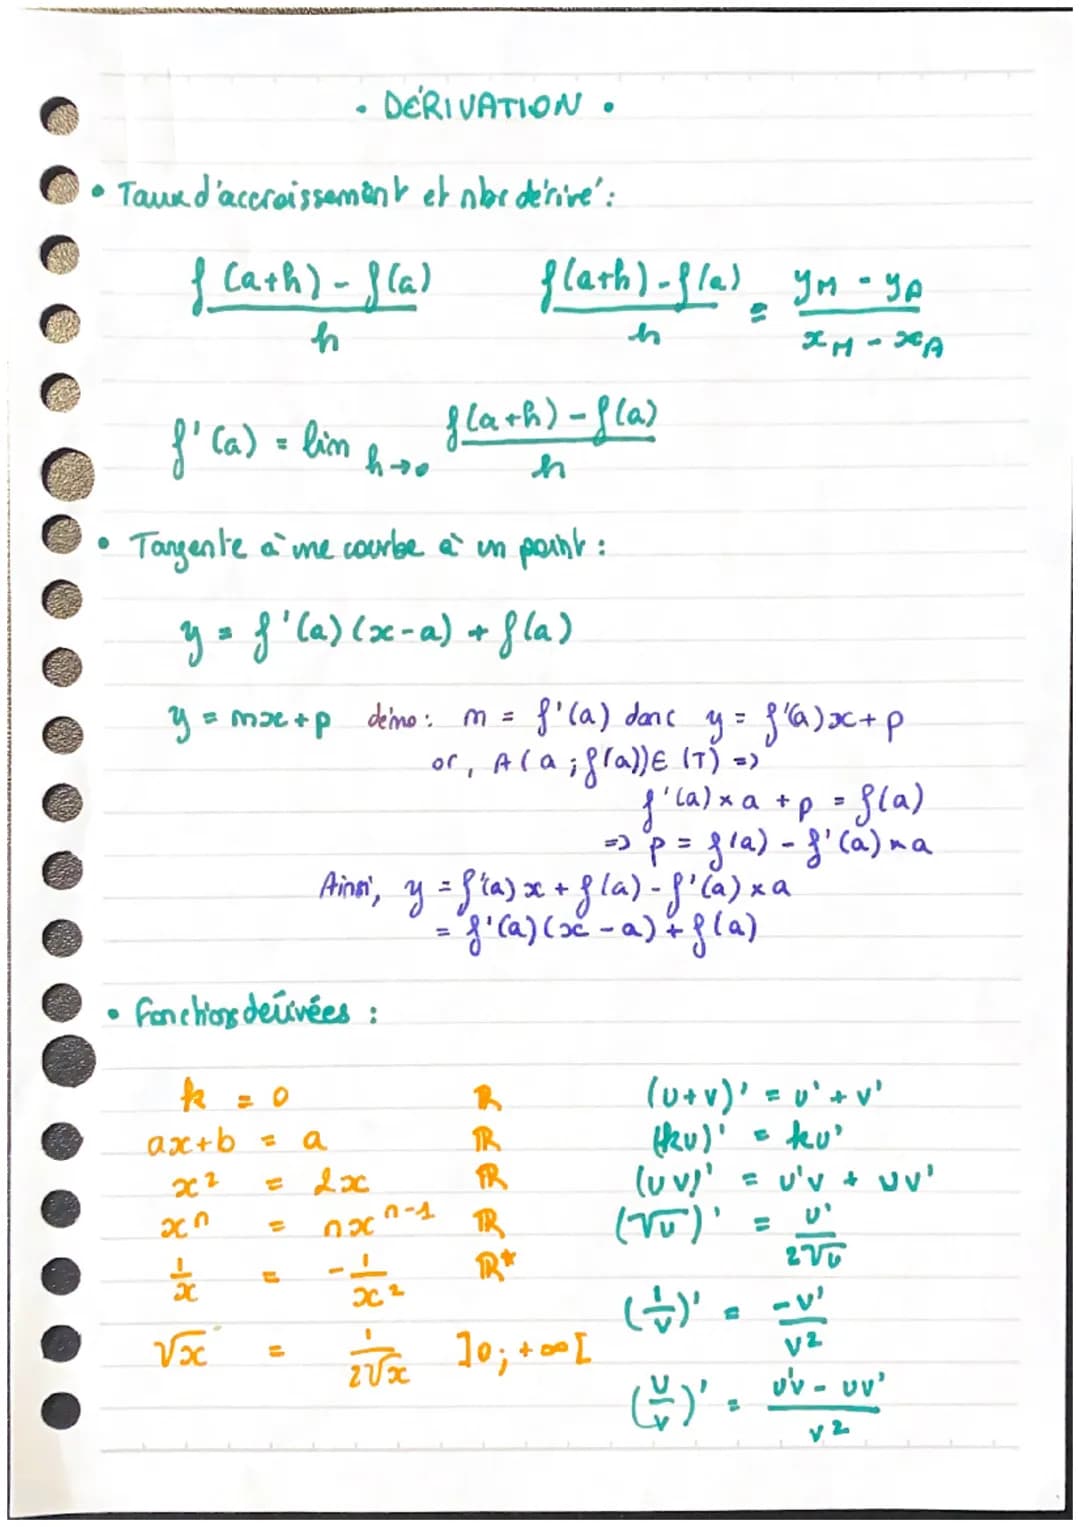 • DÉRIVATION •
• Taux d'accroissement et nbr dérivé :
f(a+h) - f(a) / h    f(a+h) - f(a) / h = yM - yA / xM - xA
f'(a) = lim h→0 f(a+h) - f(a) / h
• Tangente à une courbe à un point :
y = f'(a)(x-a) + f(a)
y = mx+p démo : m = f'(a) donc y = f'(a)x + p
or, A(a ; f(a)) ∈ (T) =>
f'(a) × a + p = f(a)
=> p = f(a) - f'(a) × a
Ainsi, y = f'(a) x + f(a) - f'(a) × a
= f'(a)(x - a) + f(a)
• Fonctions dérivées :
k = 0 ℝ (u+v)' = u' + v'
ax+b = a ℝ (ku)' = ku'
x² = 2x ℝ (uv)' = u'v + uv'
xⁿ = nxⁿ⁻¹ ℝ (√u)' = u' / 2√u
1/x = -1/x² ℝ* (1/v)' = -v' / v²
√x = 1 / 2√x ]0 ; +∞[ (u/v)' = u'v - uv' / v²